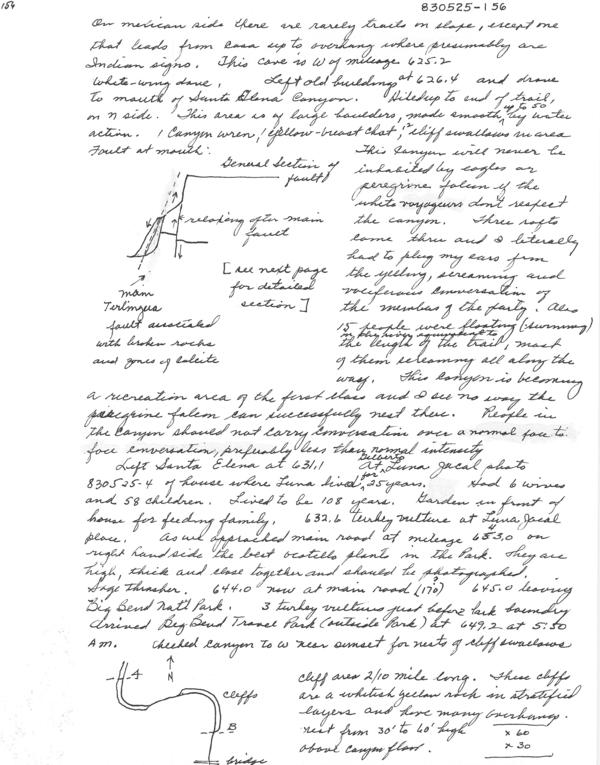 154
830525-156
On mexican side there are rarely trails on slope, except one
that leads from casa up to overhang where presumably are
Indian signs. This cave is W of mileage 625.2
White-wing dove. Left old building at 626.4 and drove
to mouth of Santa Elena Canyon. Hiked up to end of trail,
on N side. This area is of large boulders, up to 50' made smooth by water
action. 1 Canyon wren, 1 yellow-breast chat, 12 cliff swallows in area
Fault at mouth:
General Section of
fault
relaxing after main
fault
[see next page
for detailed
section]
main
Terlingua
fault associated
with broken rocks
and zones of calcite
This Canyon will never be
inhabited by eagles or
peregrine falcon if the
white voyageurs dont respect
the canyon. Three rafts
came thru and I literally
had to plug my ears from
the yelling, screaming and
vociferous conversation of
the members of the party. Also
15 people were floating (swimming)
in the river equivalent to
the length of the trail, most
of them screaming all along the
way. This Canyon is becoming
a recreation area of the first class and I see no way the
peregrine falcon can successfully nest there. People in
the canyon should not carry conversation over a normal face to
face conversation, preferably less than normal intensity
Left Santa Elena at 631.1 At Gilberto Luna Jacal photo
830525-4 of house where Luna lived for 25 years. Had 6 wives
and 58 children. Lived to be 108 years. Garden in front of
house for feeding family. 632.6 turkey vulture at Luna Jacal
place. As we approached main road at mileage 643.0 on
right hand side the best ocotillo plants in the Park. They are
high, thick and close together and should be photographed.
Sage thrasher. 644.0 now at main road (170) 645.0 leaving
Big Bend Nat'l Park. 3 turkey vultures just before park boundry
arrived Big Bend Travel Park (outside Park) at 649.2 at 5:50
Am. Checked canyon to W near sunset for nests of cliff swallows
A
N
cliffs
B
bridge
cliff area 2/10 mile long. These cliffs
are a whitish yellow rock in stratified
layers and have many overhangs.
nest from 30' to 60' high
above canyon floor.
x 60
x 30